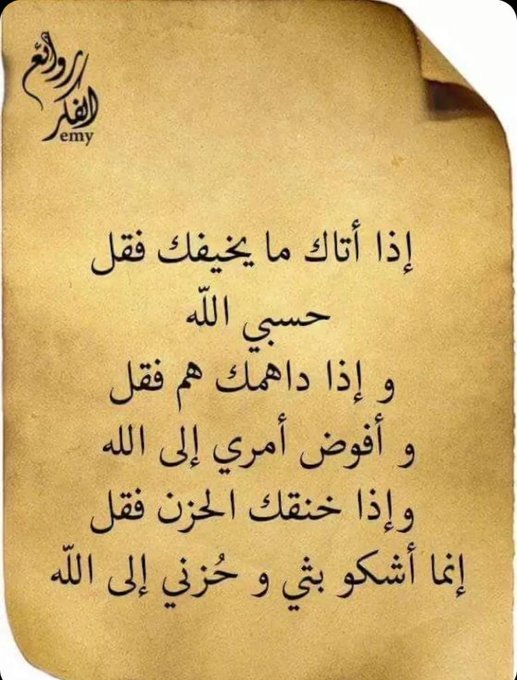 روائع
الفكر
emy
إذا أتاك ما يخيفك فقل
حسبي اللّه
و إذا داهمك هم فقل
و أفوض أمري إلى الله
وإذا خنقك الحزن فقل
إنما أشكو بثي و حُزني إلى اللّه